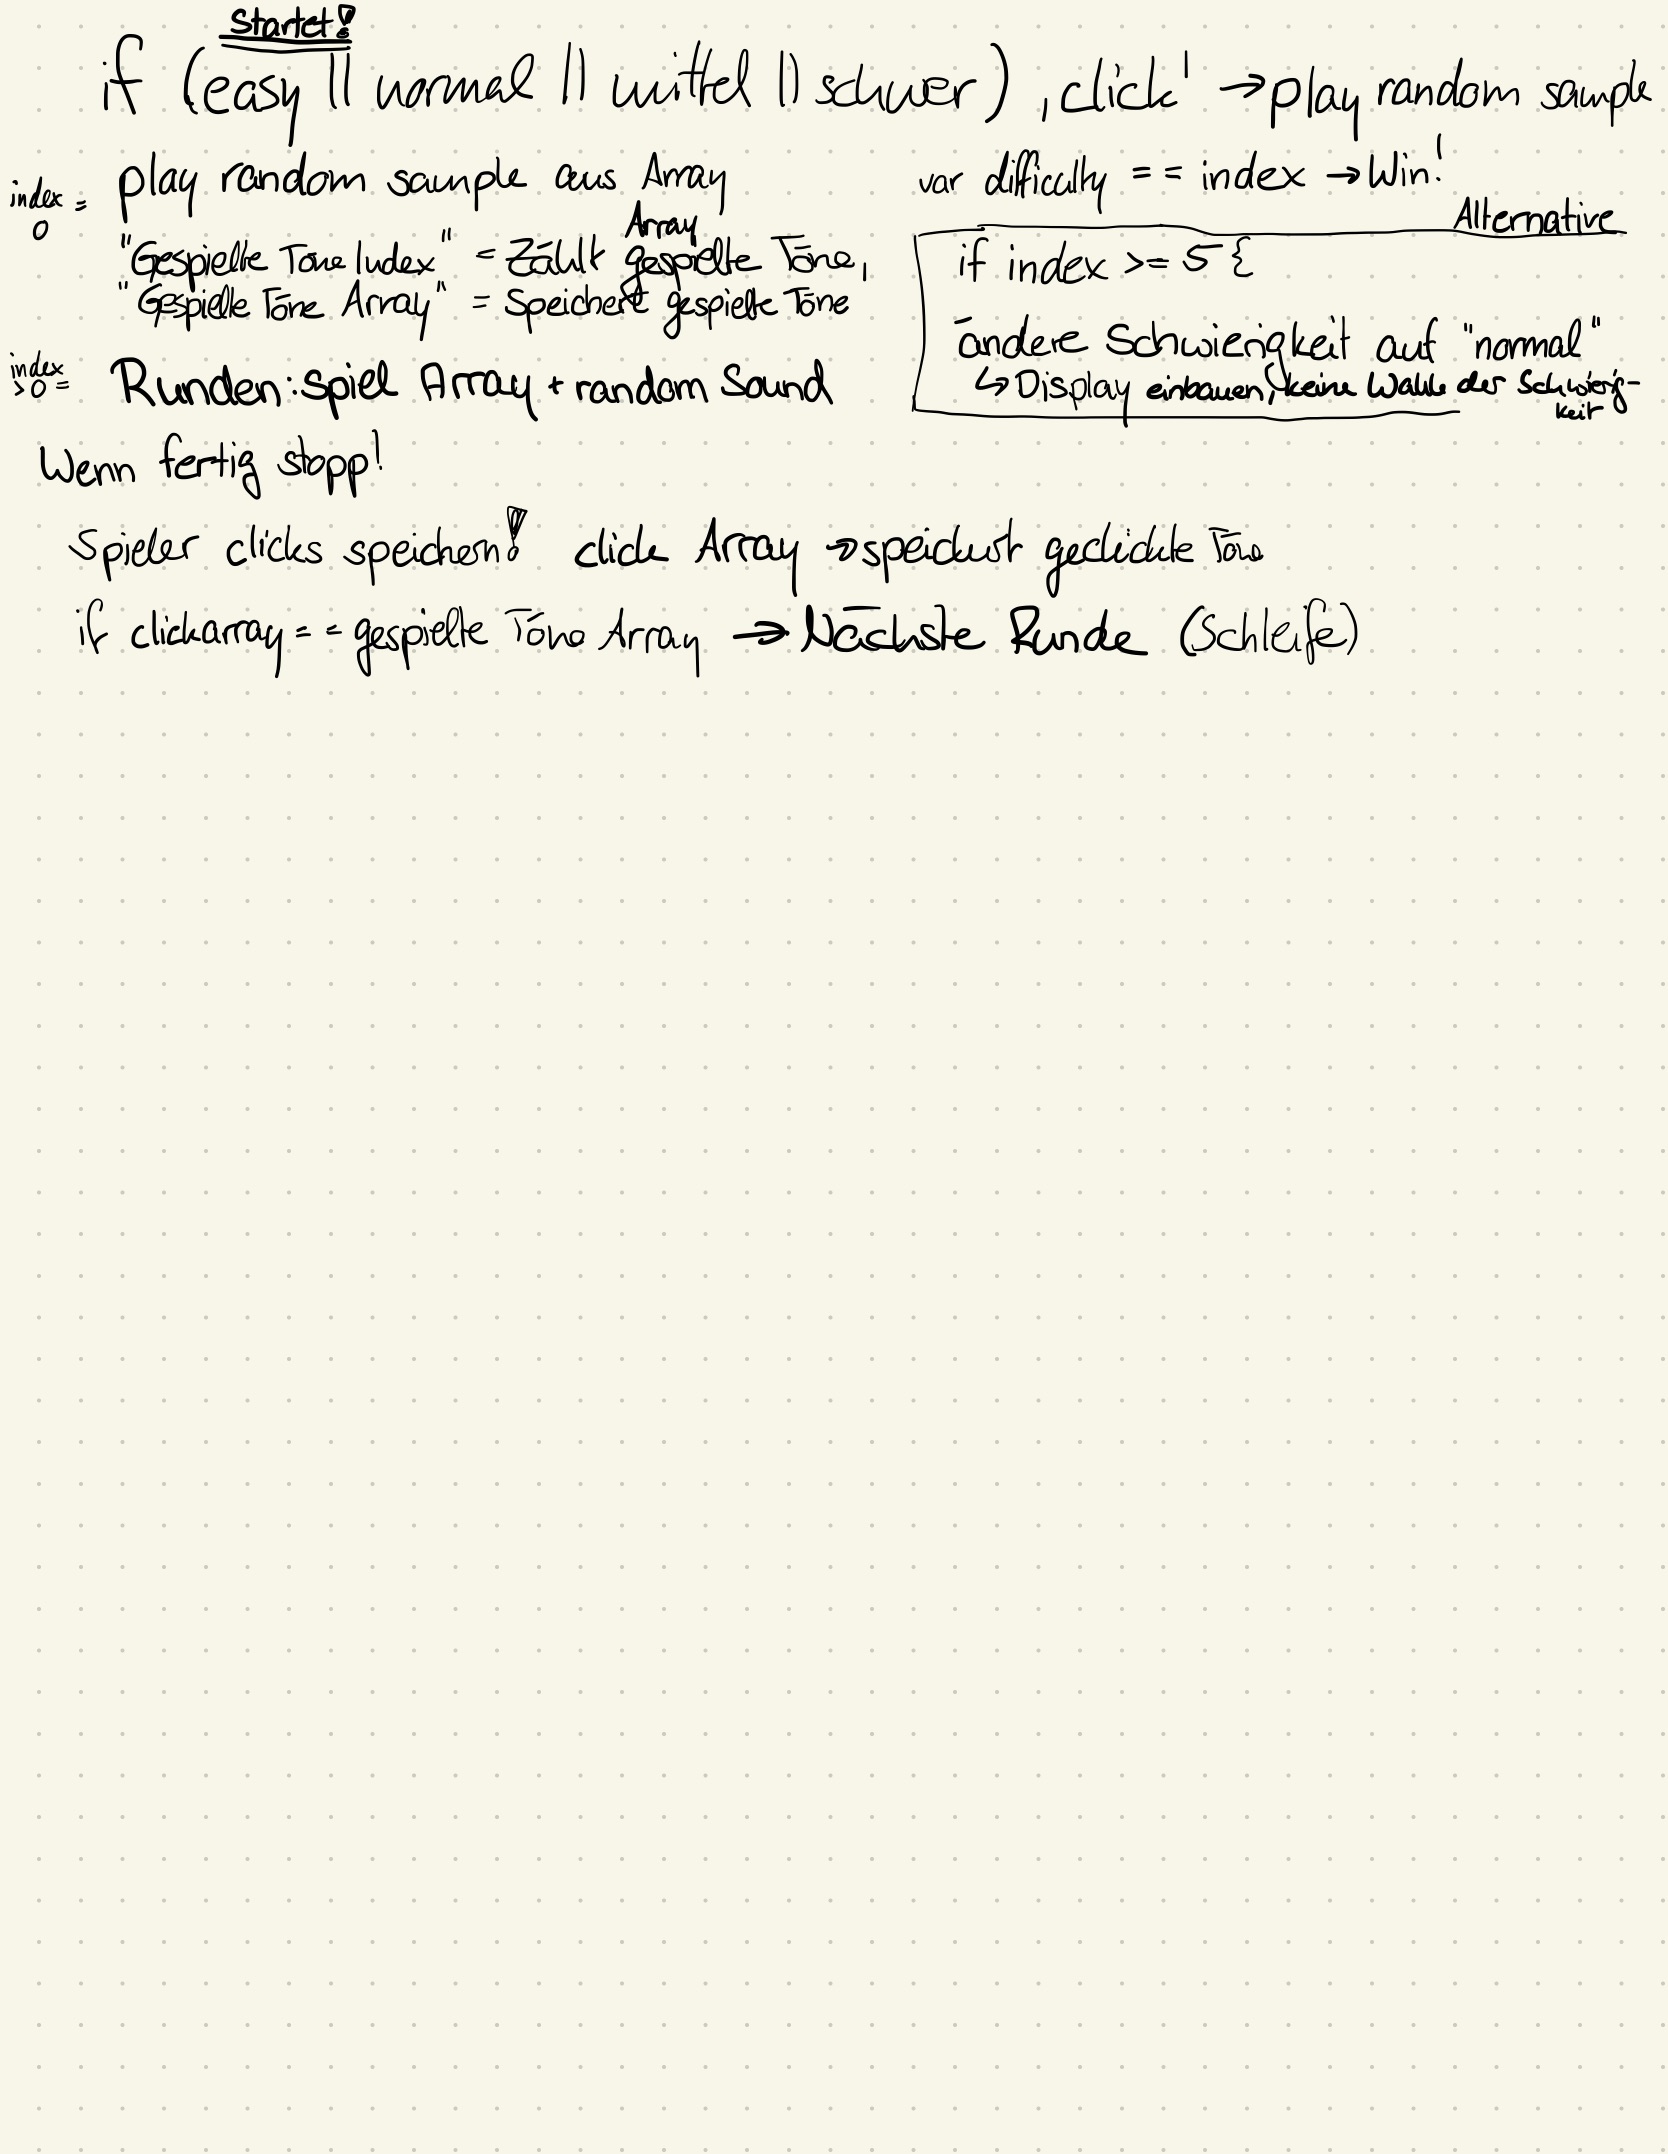 Startet!
if (easy || normal || mittel || schwer) ,click' → play random sample
index 0 = play random sample aus Array
"Gespielte Töne Index" = Zählt Array gespielte Töne,
"Gespielte Töne Array" = Speichert gespielte Töne
index > 0 = Runden: spiel Array + random Sound
var difficulty == index → Win!
Alternative
if index >= 5 {
ändere Schwierigkeit auf "normal"
↳ Display einbauen, keine Wahl der Schwierig-
keit
Wenn fertig stopp!
Spieler clicks speichern! click Array → speichert geclickte Töne
if clickarray == gespielte Töne Array → Nächste Runde (Schleife)